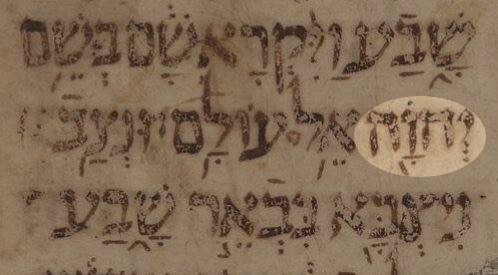 שָׁ֑בַע וַיִּ֨קְרָא שָׁ֔ם בְּשֵׁ֥ם
יְהוָ֖ה אֵ֥ל עוֹלָֽם וּנְצַב
נִיצְבָּא בִּבְאֵ֣ר שֶׁ֑בַע